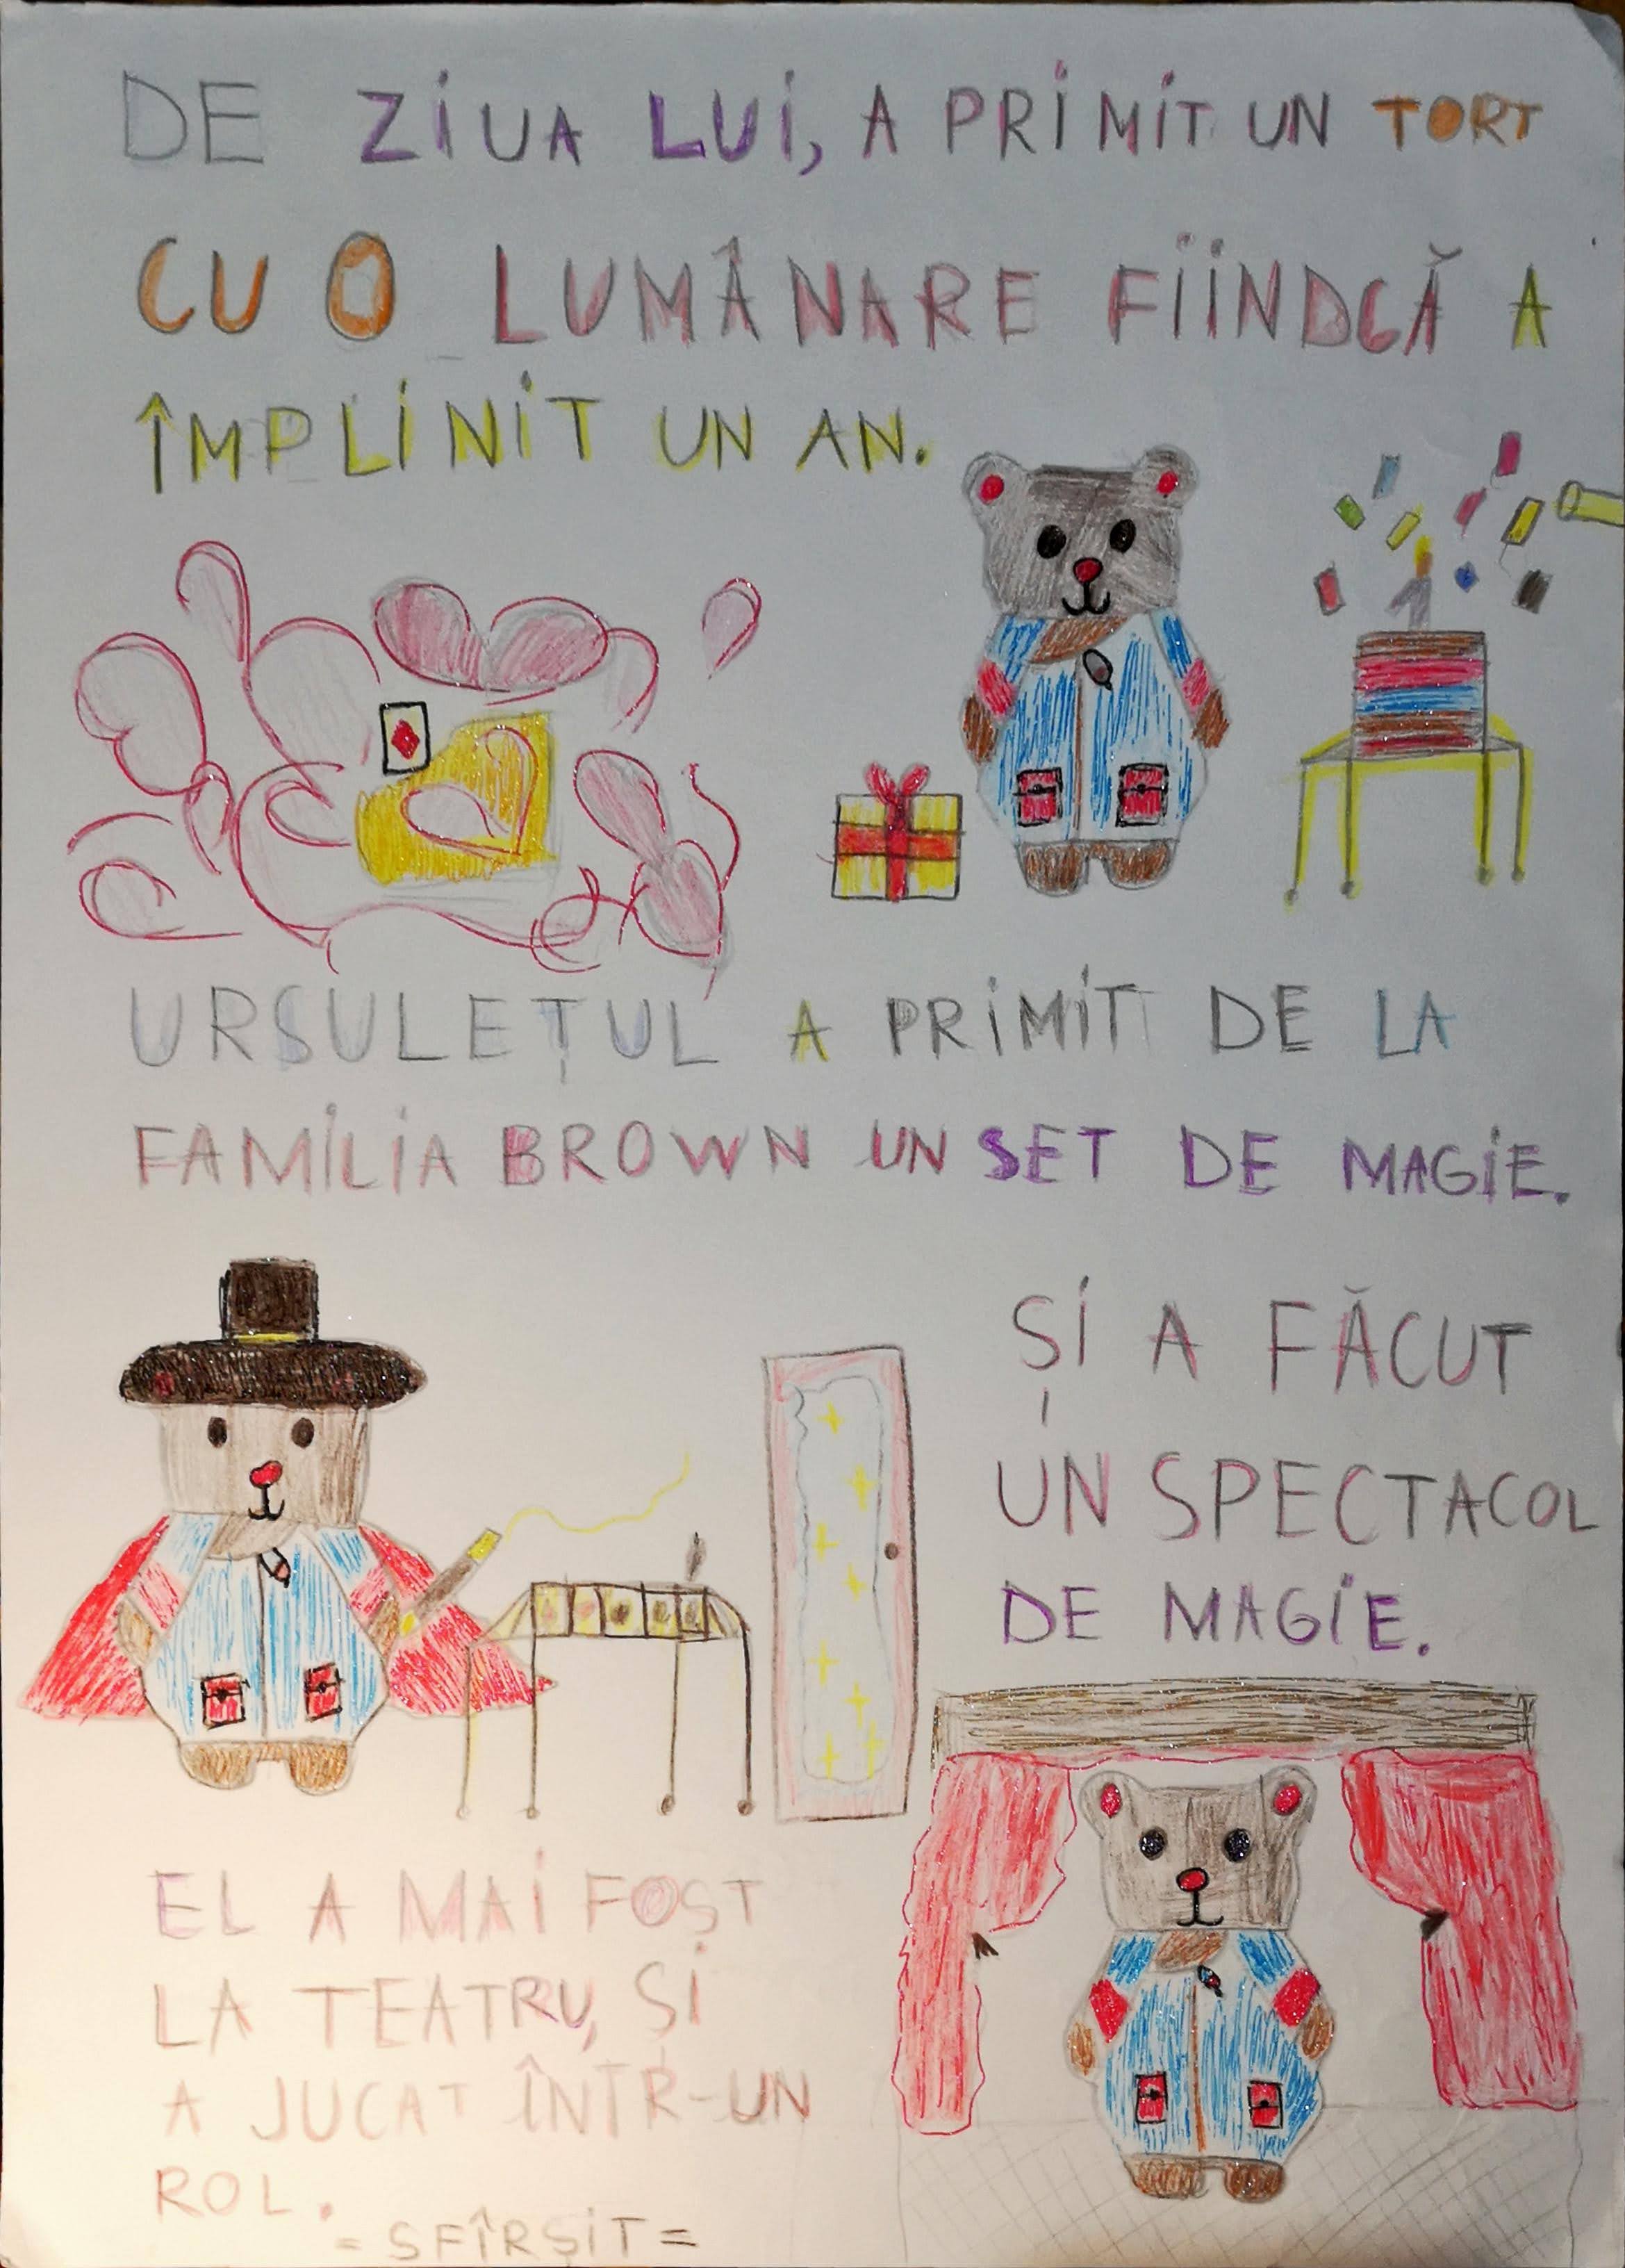 DE ZIUA LUI, A PRIMIT UN TORT
CU O LUMÂNARE FIINDCĂ A
ÎMPLINIT UN AN.
URSULEȚUL A PRIMIT DE LA
FAMILIA BROWN UN SET DE MAGIE.
ȘI A FĂCUT
UN SPECTACOL
DE MAGIE.
EL A MAI FOST
LA TEATRU, ȘI
A JUCAT ÎNTR-UN
ROL.
= SFÎRȘIT =
1